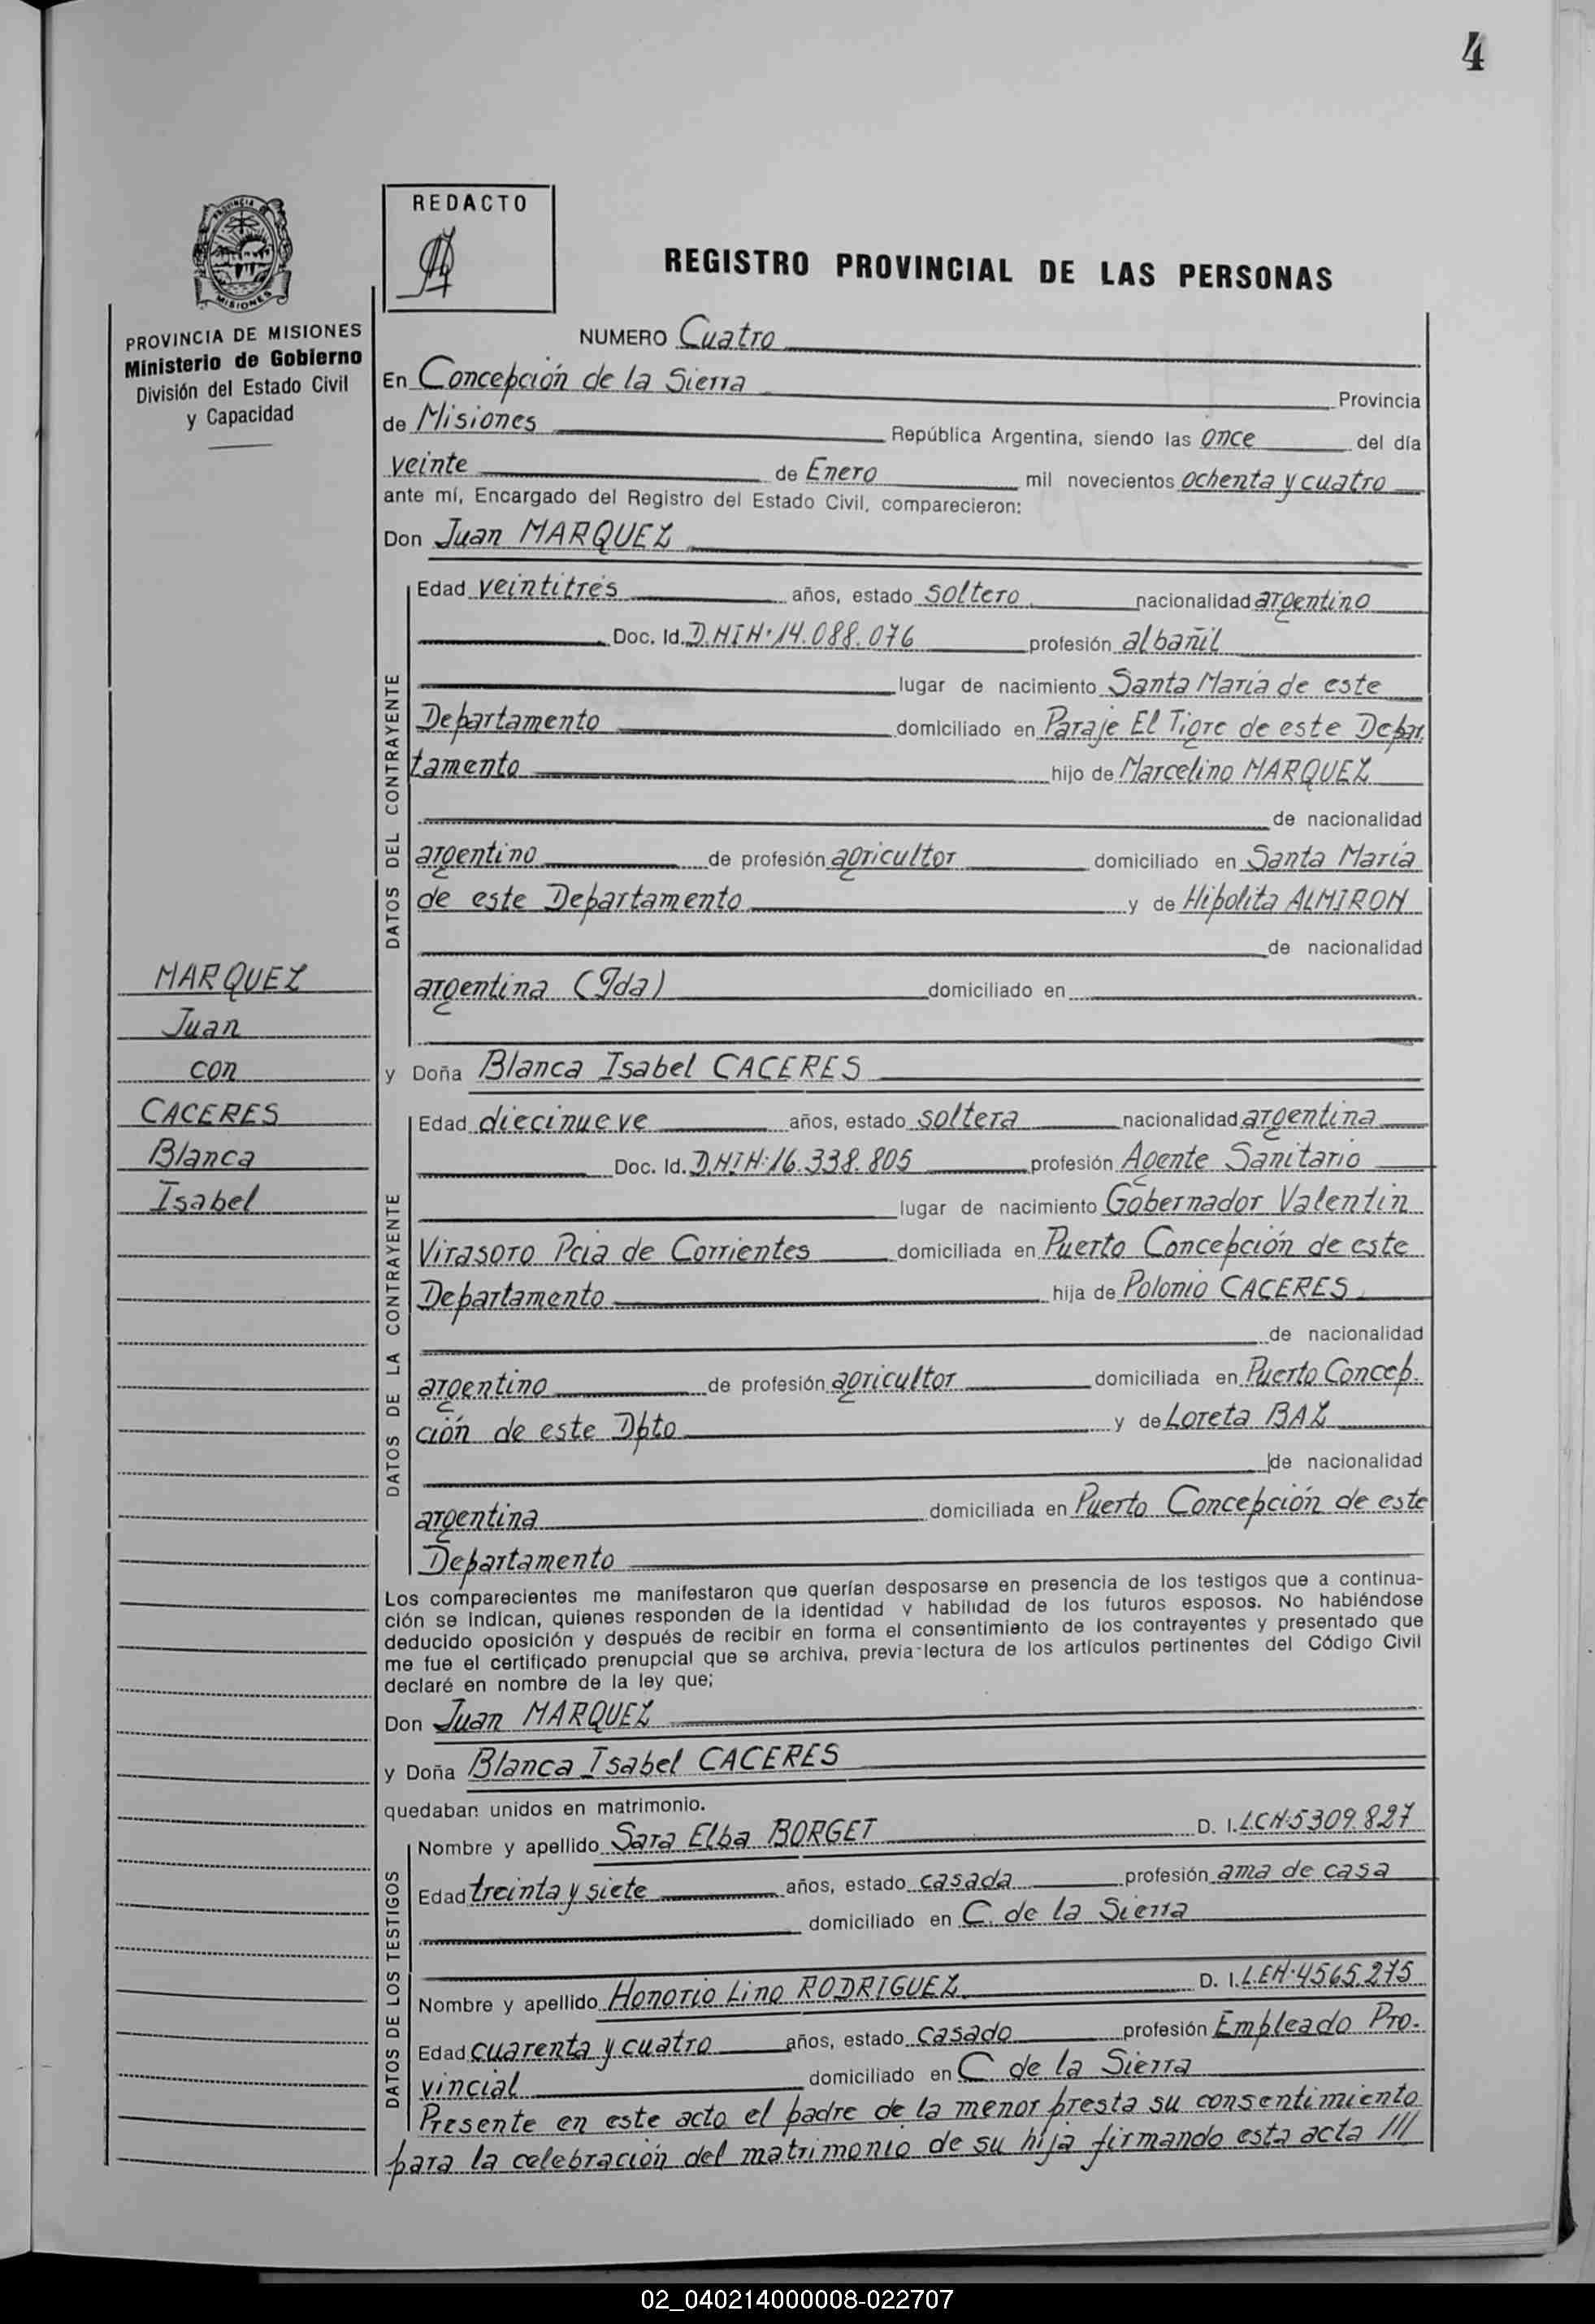 4
REDACTO
REGISTRO PROVINCIAL DE LAS PERSONAS
PROVINCIA
MISIONES
PROVINCIA DE MISIONES
Ministerio de Gobierno
División del Estado Civil
y Capacidad
NUMERO Cuatro
En Concepción de la Sierra Provincia
de Misiones República Argentina, siendo las once del día
veinte de Enero mil novecientos ochenta y cuatro
ante mí, Encargado del Registro del Estado Civil, comparecieron:
Don Juan MARQUEZ
DATOS DEL CONTRAYENTE
Edad veintitrés años, estado soltero nacionalidad argentino
Doc. Id. D.N.I.N° 14.088.076 profesión albañil
lugar de nacimiento Santa María de este
Departamento domiciliado en Paraje El Tigre de este Depar
tamento hijo de Marcelino MARQUEZ
de nacionalidad
argentino de profesión agricultor domiciliado en Santa María
de este Departamento y de Hipolita ALMIRON
de nacionalidad
argentina (Fda) domiciliado en
MARQUEZ
Juan
con
CACERES
Blanca
Isabel
y Doña Blanca Isabel CACERES
DATOS DE LA CONTRAYENTE
Edad diecinueve años, estado soltera nacionalidad argentina
Doc. Id. D.N.I.N° 16.338.805 profesión Agente Sanitario
lugar de nacimiento Gobernador Valentin
Virasoro Pcia de Corrientes domiciliada en Puerto Concepción de este
Departamento hija de Polonio CACERES
de nacionalidad
argentino de profesión agricultor domiciliada en Puerto Concep.
ción de este Dpto y de Loreta BAZ
de nacionalidad
argentina domiciliada en Puerto Concepción de este
Departamento
Los comparecientes me manifestaron que querían desposarse en presencia de los testigos que a continua-
ción se indican, quienes responden de la identidad y habilidad de los futuros esposos. No habiéndose
deducido oposición y después de recibir en forma el consentimiento de los contrayentes y presentado que
me fue el certificado prenupcial que se archiva, previa lectura de los artículos pertinentes del Código Civil
declaré en nombre de la ley que;
Don Juan MARQUEZ
y Doña Blanca Isabel CACERES
quedaban unidos en matrimonio.
DATOS DE LOS TESTIGOS
Nombre y apellido Sara Elba BORGET D. I. L.C.N° 5309.827
Edad treinta y siete años, estado casada profesión ama de casa
domiciliado en C. de la Sierra
Nombre y apellido Honorio Lino RODRIGUEZ D. I. L.E.N° 4565.275
Edad cuarenta y cuatro años, estado casado profesión Empleado Pro.
vincial domiciliado en C. de la Sierra
Presente en este acto el padre de la menor presta su consentimiento
para la celebración del matrimonio de su hija firmando esta acta ///
02_040214000008-022707